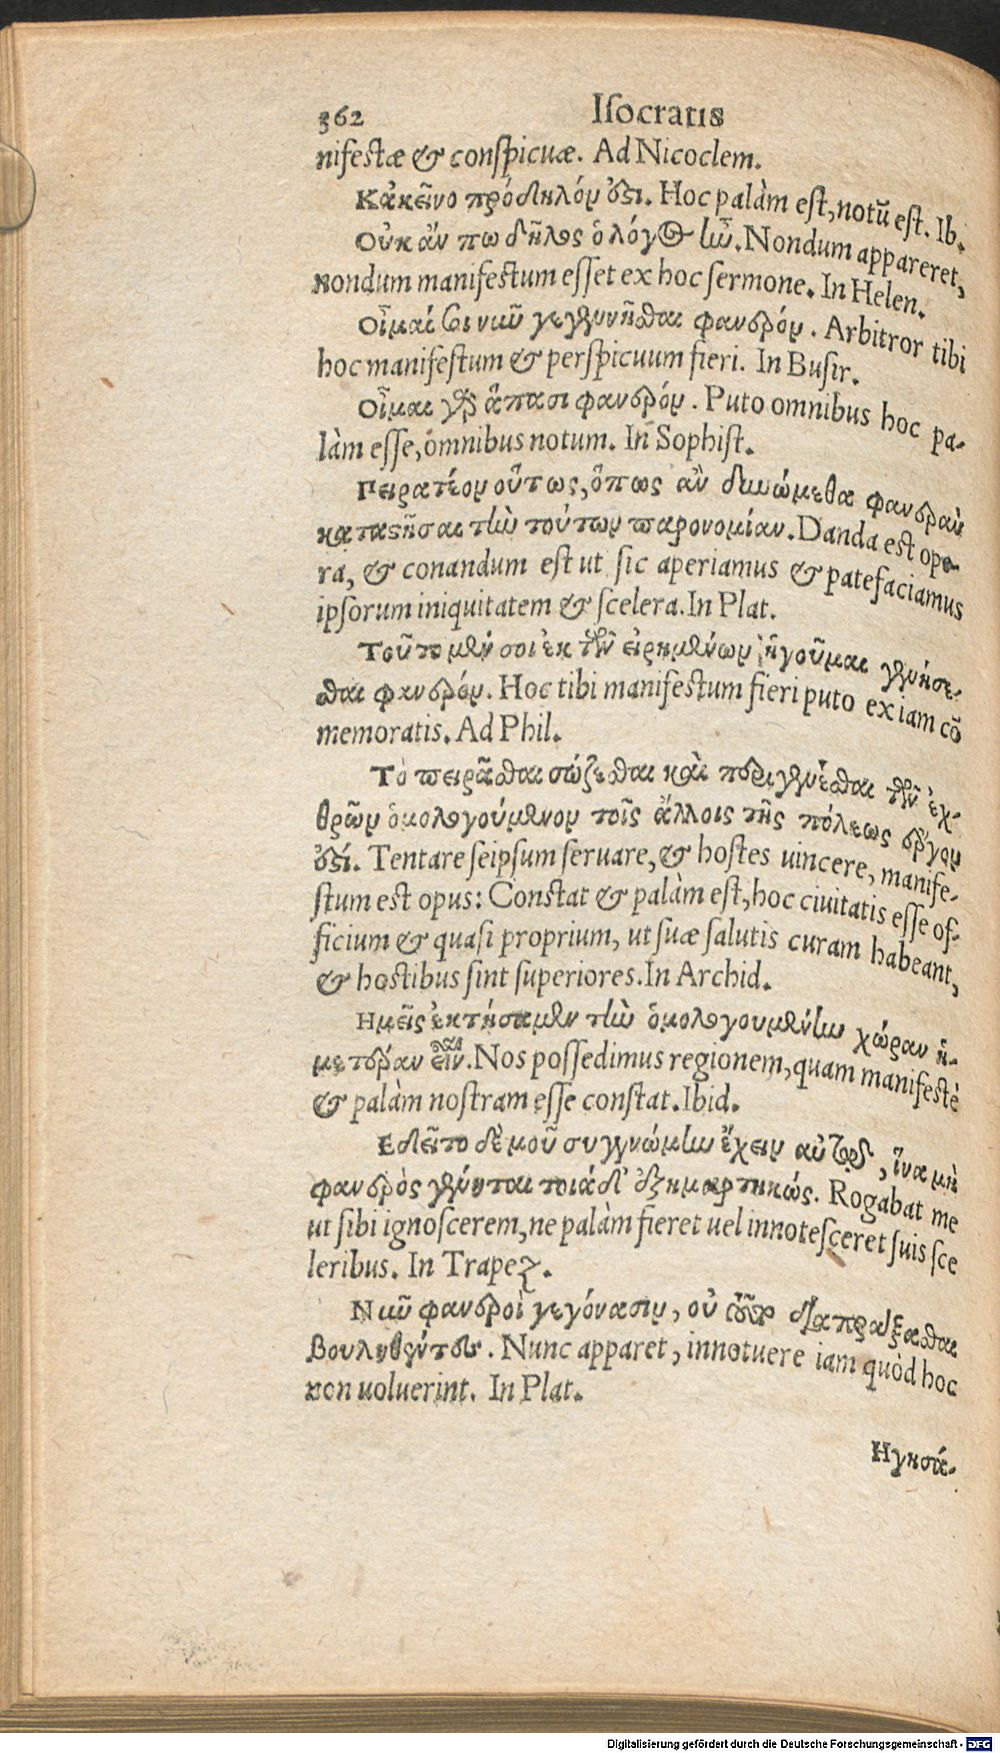 362 Iſocratis
nifestæ & conſpicuæ. Ad Nicoclem.
Κἀκεῖνο πρόδηλόν ὅτι. Hoc palàm eſt, notũ eſt. Ib.
Οὐκ ἄν πω δῆλος ὁ λόγος ἦν. Nondum appareret,
nondum manifeſtum eſſet ex hoc ſermone. In Helen.
Οἶμαί σοι νιῦ γεγενῆσθαι φανερόν. Arbitror tibi
hoc manifeſtum & perſpicuum fieri. In Buſir.
Οἶμαι γὰρ ἅπασι φανερόν. Puto omnibus hoc pa-
làm eſſe, omnibus notum. In Sophiſt.
Πειρατέον οὕτως, ὅπως ἂν δυνώμεθα φανερὰν
καταστῆσαι τὴν τούτων παρονομίαν. Danda eſt ope-
ra, & conandum eſt ut ſic aperiamus & patefaciamus
ipſorum iniquitatem & ſcelera. In Plat.
Τοῦτο μέν σοι ἐκ τῶν εἰρημένων ἡγοῦμαι γενήσε-
σθαι φανερόν. Hoc tibi manifeſtum fieri puto ex iam cõ
memoratis. Ad Phil.
Τὸ πειρᾶσθαι σώζεσθαι καὶ περιγενέσθαι τῶν ἐχ-
θρῶν ὁμολογούμενον τοῖς ἄλλοις τῆς πόλεως ἔργον
ἐστί. Tentare ſeipſum ſeruare, & hoſtes uincere, manife-
ſtum eſt opus: Conſtat & palàm eſt, hoc ciuitatis eſſe of-
ficium & quaſi proprium, ut ſuæ ſalutis curam habeant,
& hoſtibus ſint ſuperiores. In Archid.
Ημεῖς ἐκτήσαμεν τὴν ὁμολογουμένην χώραν ἡ-
μετέραν εἶναι. Nos poſſedimus regionem, quam manifeſtè
& palàm noſtram eſſe conſtat. Ibid.
Εδεῖτο δὲ μοῦ συγγνώμην ἔχειν αὑτῷ, ἵνα μὴ
φανερὸς γένηται τοιάδ' ἐξημαρτηκώς. Rogabat me
ut ſibi ignoſcerem, ne palàm fieret uel innoteſceret ſuis ſce
leribus. In Trapez.
Νιῦ φανεροὶ γεγόνασιν, οὐ διαπράξασθαι
βουληθέντες. Nunc apparet, innotuere iam quòd hoc
non uoluerint. In Plat.
Ηγησά-
Digitalisierung gefördert durch die Deutsche Forschungsgemeinschaft - DFG